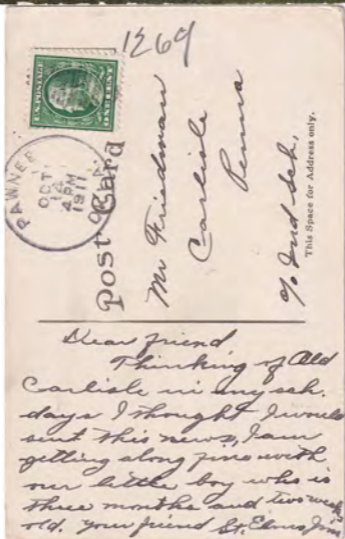 1269
U.S. POSTAGE
ONE CENT
PAWNEE
OCT
12
4 PM
1911
OKLA.
Post Card
Mr Friedman
Carlisle
Penna
c/o Ind Sch.
This Space for Address only.
Dear friend
Thinking of Old
Carlisle in my sch.
days I thought I would
sent this news, I am
getting along fine with
our little boy who is
three months and two weeks
old. your friend St. Elmo Jim